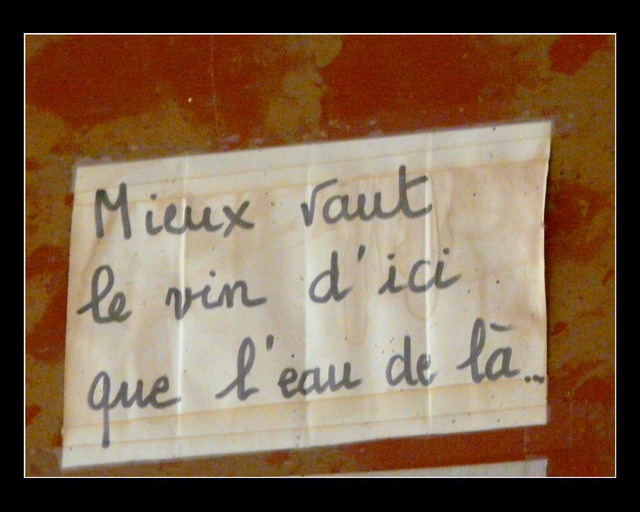 Mieux vaut
le vin d'ici
que l'eau de là...